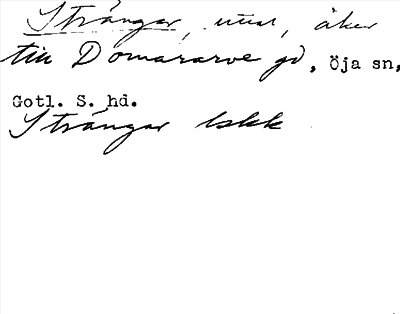 Strångar, utmr, åker
till Domararve gd, Öja sn,
Gotl. S. hd.
Strångar lskk